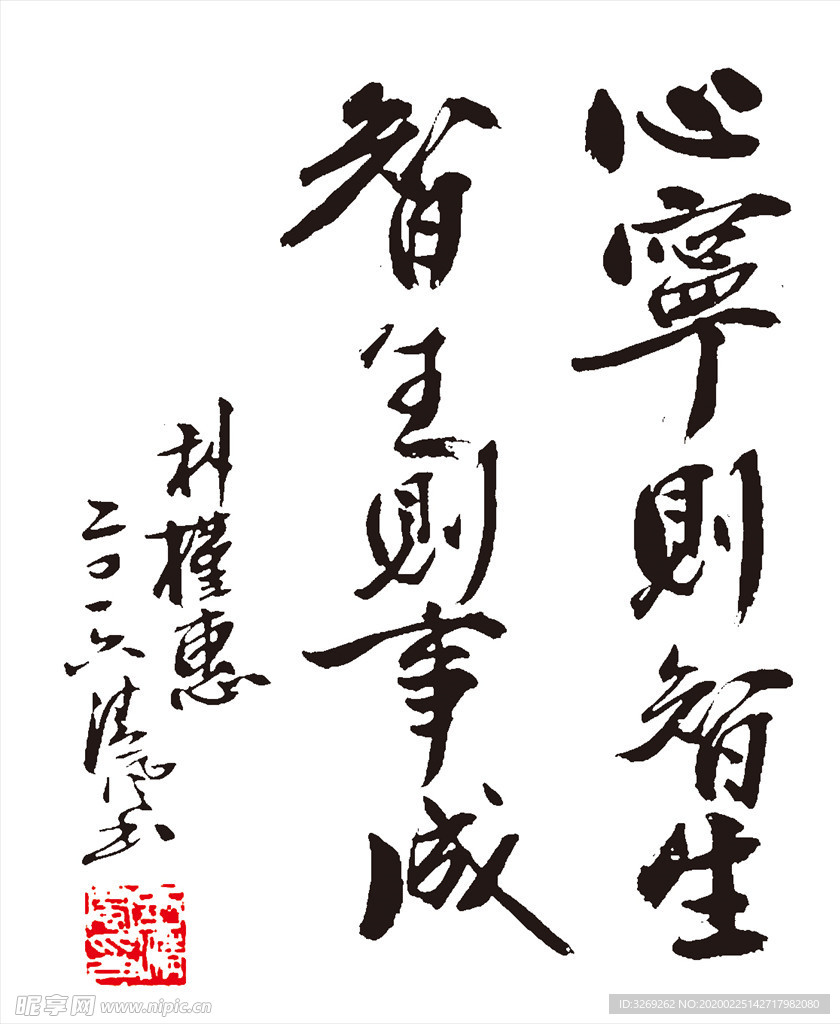 心寧則智生
智生則事成
二〇一六
昵享网 www.nipic.cn
ID:3269262 NO:20200225142717982080